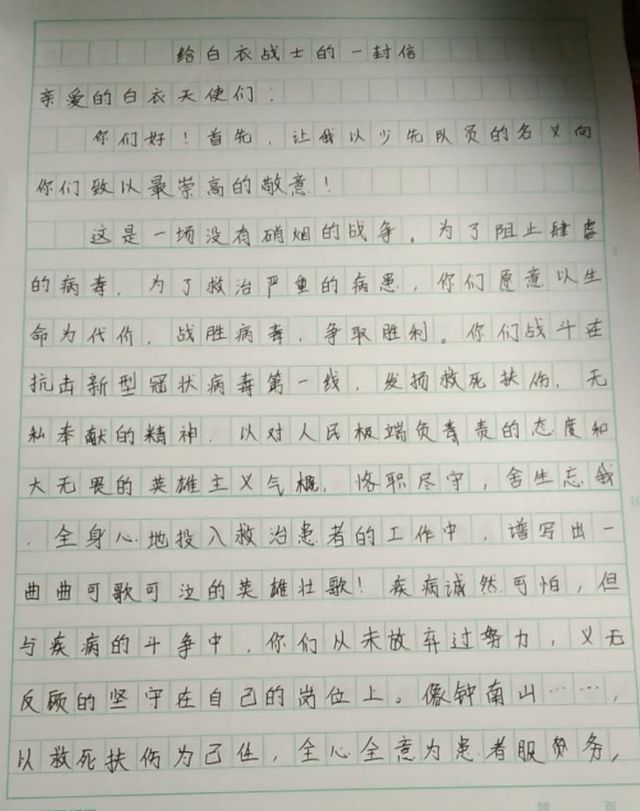 给白衣战士的一封信
亲爱的白衣天使们：
你们好！首先，让我以少先队员的名义向
你们致以最崇高的敬意！
这是一场没有硝烟的战争。为了阻止肆虐
的病毒，为了救治严重的病患，你们愿意以生
命为代价，战胜病毒，争取胜利。你们战斗在
抗击新型冠状病毒第一线，发扬救死扶伤，无
私奉献的精神，以对人民极端负责的态度和
大无畏的英雄主义气概，恪职尽守，舍生忘我
，全身心地投入救治患者的工作中，谱写出一
曲曲可歌可泣的英雄壮歌！疾病诚然可怕，但
与疾病的斗争中，你们从未放弃过努力，义无
反顾的坚守在自己的岗位上。像钟南山……，
以救死扶伤为己任，全心全意为患者服务，
第 页